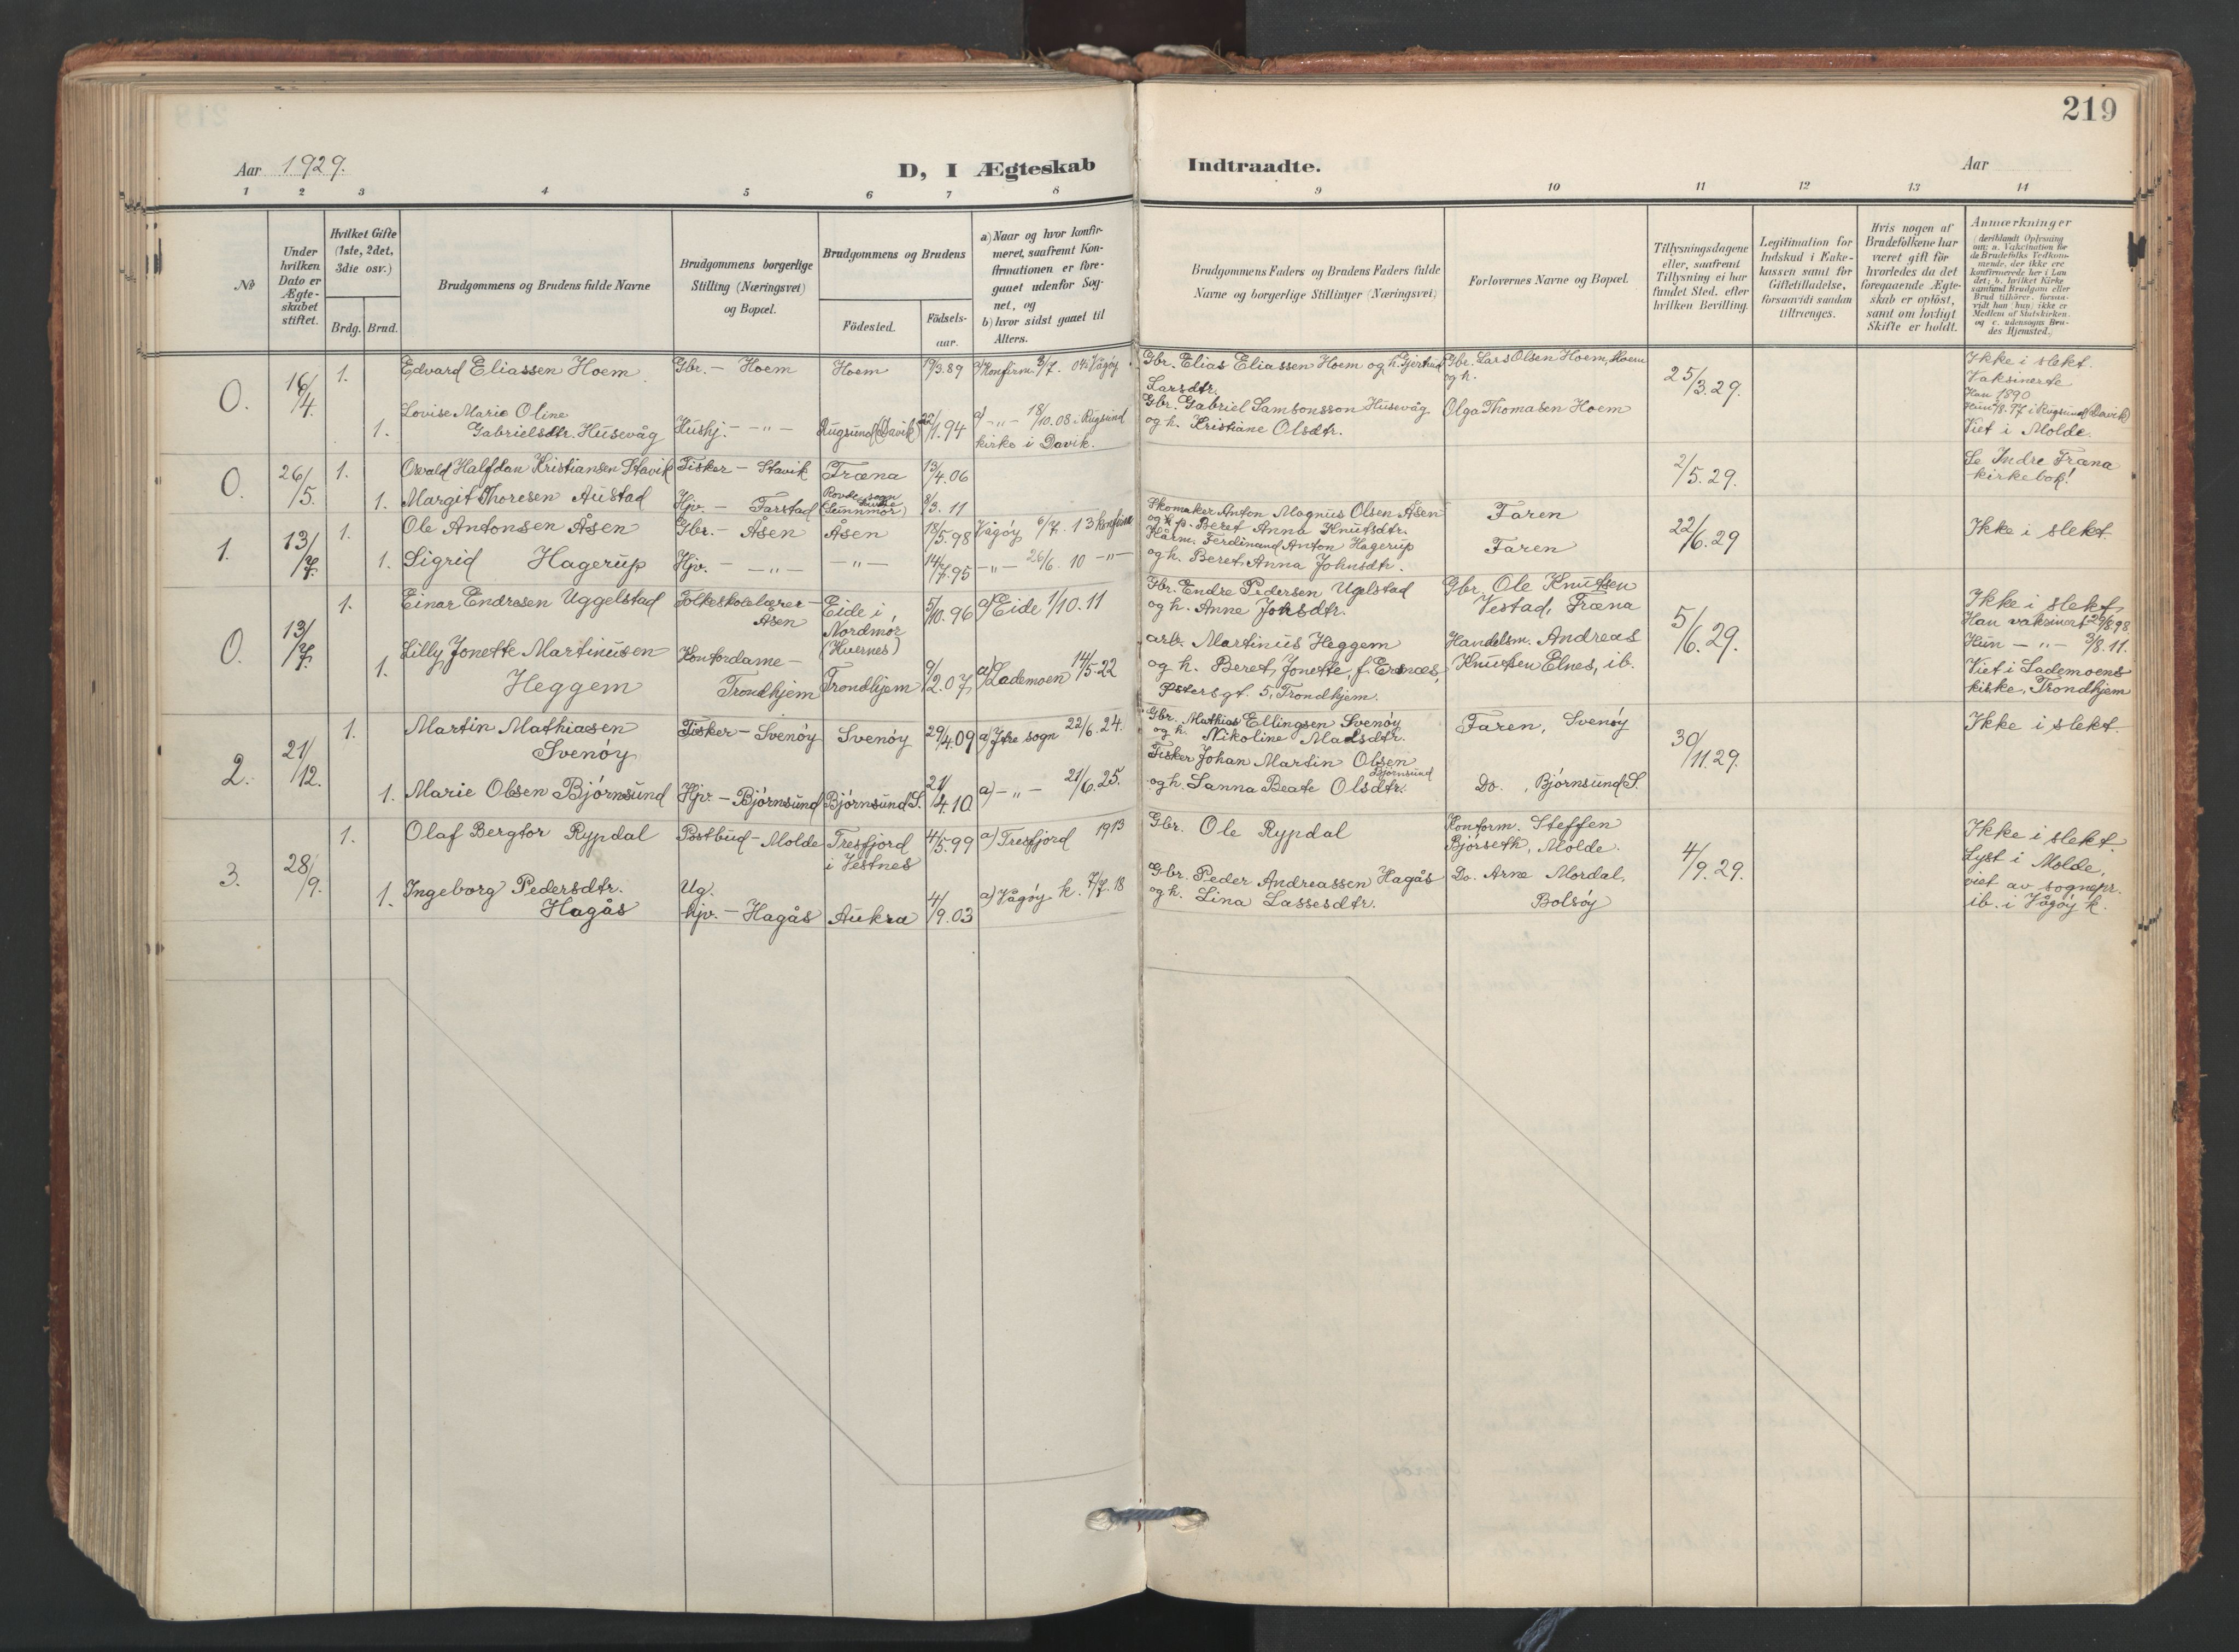 219
Aar 1929.
D, I Ægteskab
Indtraadte.
Aar
1 2 3 4 5 6 7 8 9 10 11 12 13 14
No
Under hvilken Dato er Ægteskabet stiftet.
Hvilket Gifte (1ste, 2det, 3die osv.)
Brdg. Brud.
Brudgommens og Brudens fulde Navne
Brudgommens borgerlige Stilling (Næringsvei) og Bopæl.
Brudgommens og Brudens
Födested.
Födsels-aar.
a) Naar og hvor konfirmeret, saafremt Konfirmationen er foregaaet udenfor Sognet, og
b) hvor sidst gaaet til Alters.
Brudgommens Faders og Brudens Faders fulde Navne og borgerlige Stillinger (Næringsvei)
Forlovernes Navne og Bopæl.
Tillysningsdagene eller, saafremt Tillysning ei har fundet Sted, efter hvilken Bevilling.
Legitimation for Indskud i Enkekassen samt for Giftetilladelse, forsaavidt saadan tiltrænges.
Hvis nogen af Brudefolkene har været gift för hvorledes da det foregaaende Ægteskab er oplöst, samt om lovligt Skifte er holdt.
Anmærkninger
(deriblandt Oplysning om: a. Vakcination for de Brudefolks Vedkommende, der ikke ere konfirmerede her i Landet; b. hvilket Kirkesamfund Brudgom eller Brud tilhörer, forsaavidt han (hun) ikke er Medlem af Statskirken, og c. udensogns Brudes Hjemsted.)
O. 16/4. 1. Edvard Eliassen Hoem Gbr. – Hoem Hoem 19/3.89 a) Konfirm. 3/7. 04 i Vågöy
Gbr. Elias Eliassen Hoem og h. Gjertrud Larsdtr.
Gbr. Lars Olsen Hoem, Hoem og h.
25/3.29.
Ikke i slekt.
Vaksinerte
Han 1890
1. Lovise Marie Oline
Gabrielsdtr. Husevåg Hushj. – " – Rugsund (Davik) 22/1.94 a) – " – 18/10.08 i Rugsund
kirke i Davik.
Gbr. Gabriel Samsonsson Husevåg
og h. Kristiane Olsdtr.
Olga Thomasen Hoem
Hun /8.97 i Rugsund (Davik)
Viet i Molde.
O. 26/5. 1. Osvald Halfdan Kristiansen Stavik Fisker – Stavik Fræna 13/4.06
2/5.29.
Se Indre Fræna
kirkebok!
1. Margit Thoresen Austad Hjv. – Farstad Rovde sogn
(Sunnmör) 8/3. 11
1. 13/7. 1. Ole Antonsen Åsen Gbr. – Åsen Åsen 18/5.98 Vågöy 6/7. 13 konfirm
Skomaker Anton Magnus Olsen Åsen
og h. p. Beret Anna Knutsdtr.
Faren
22/6.29
Ikke i slekt.
1. Sigrid Hagerup Hjv. – " – – " – 14/7.95 – " – 26/6. 10 – " –
Ferdinand Anton Hagerup
og h. Beret Anna Johnsdtr.
Faren
O. 13/7. 1. Einar Endresen Uggelstad Folkeskolelærer –
Åsen Eide i
Nordmör
(Kvernes) 5/10.96 a) Eide 1/10.11
Gbr. Endre Pedersen Ugelstad
og h. Anne Johsdtr.
Gbr. Ole Knutsen
Vestad, Fræna
5/6.29.
Ikke i slekt
Han vaksinert 29/8.98.
Hun – " – 3/8.11.
1. Lilly Jonette Martinusen
Heggem Kontordame –
Trondhjem Trondhjem 9/2.07 a) Lademoen 14/5.22
arb. Martinus Heggem
og h. Beret Jonette, f. Ersnæs,
Östersgt. 5, Trondhjem.
Handelsm. Andreas
Knutsen Elnes, ib.
Viet i Lademoens
kirke, Trondhjem
2. 21/12. 1. Martin Mathiasen
Svenöy Fisker – Svenöy Svenöy 29/4.09 a) Ytre sogn 22/6.24.
Gbr. Mathias Ellingsen Svenöy
og h. Nikoline Madsdtr.
Faren, Svenöy
30/11.29.
Ikke i slekt.
1. Marie Olsen Björnsund Hjv. – Björnsund Björnsund S. 21/4.10 a) – " – 21/6.25.
Fisker Johan Martin Olsen
Björnsund
og h. Sanna Beate Olsdtr.
Do. , Björnsund S.
3. 28/9. 1. Olaf Bergtor Rypdal Postbud – Molde Tresfjord
i Vestnes 4/5.99 a) Tresfjord 1913
Gbr. Ole Rypdal
Kontorm. Steffen
Björseth, Molde.
4/9.29.
Ikke i slekt.
Lyst i Molde,
viet av sognepr.
ib. i Vågöy k.
1. Ingeborg Pedersdtr.
Hagås Ug.
hjv. – Hagås Aukra 4/9.03 a) Vågöy k. 7/7. 18
Gbr. Peder Andreassen Hagås
og h. Lina Lassesdtr.
Do. Arne Mordal,
Bolsöy